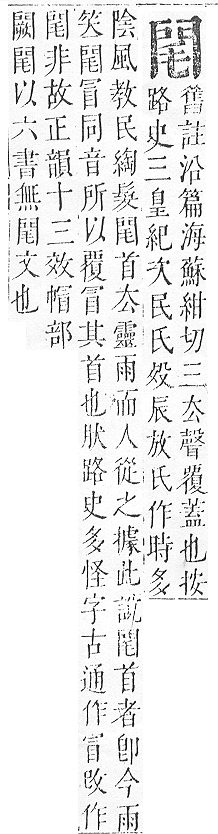 閐
舊註沿篇海蘇紺切三厺聲覆蓋也按
路史三皇紀次民氏歿辰放氏作時多
陰風敎民綯髮閐首厺靈雨而人從之據此說閐首者卽今雨
笠閐冐同音所以覆冐其首也肰路史多怪字古通作冐改作
閐非故正韻十三效帽部
闕閐以六書無閐文也